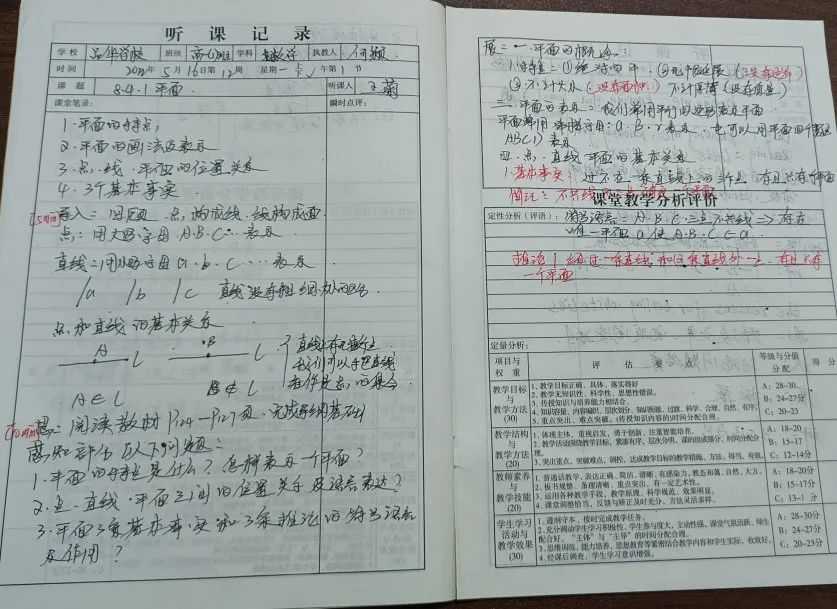 听课记录
学校 品华学校 班级 高(1)班 学科 数学 执教人 何颖
时间 2022年5月16日第12周 星期一上下午第1节
课题 8.4.1平面 听课人 王菊
课堂笔录: 瞬时点评:
1.平面的特点,
2.平面的画法及表示
3.点.线.平面的位置关系
4.3个基本事实
(5min)导入:点构成线.线构成面
点:用大写字母A.B.C…表示
直线:用小写字母a.b.c…表示
/a /b /c 直线没有粗细
点和直线的基本关系
A L B L
A∈L B∉L
直线有无数个点
我们可以把直线
看作是点的集合
(10min)思:阅读教材P124-P127页.完成
感知部分以下问题:
1.平面的特点是什么?怎样表示一个平面?
2.点.直线.平面之间的位置关系及语言表达?
3.平面3条基本事实和3条推论的符号语言
及作用?
展:一.平面的概念:
1.特征:①绝对的平.②无限延展(没有边界)
③不计大小(没有面积)不计厚薄(没有质量)
二.平面的表示:我们常用平行四边形表示平面
平面常用希腊字母:α.β.γ表示.也可以用平面四个顶点
ABCD表示
四.点.直线.平面的基本关系
1.基本事实:过不在一条直线上的三个点.有且只有一个平面
简记:不共线的三点确定一个平面
课堂教学分析评价
定性分析(评语): 符号语言:A.B.C三点不共线⇒存在
唯一平面α使A.B.C∈α
推论1 经过一条直线和这条直线外一点.有且只有
一个平面
定量分析:
项目与权重 评估要点 等级与分值分配 得分
教学目标与教学方法(30)
1、教学目标正确、具体、落实得好
2、教学无知识性、科学性、思想性错误。
3、传授知识与培养能力相结合。
4、知识容量、内容编织、层次划分、知识联接、过渡、科学、合理、自然、有序。
5、重点突出、难点突破。(传授知识内容的)时间分配合理。
A:28-30
B:24-27分
C:20-23
教学结构与教学方法(20)
1、体现主体,重视启发,勇于创新、注重智能培养。
2、教学活动围绕教学目标,紧凑有序,层次分明,课的组成部分、时间分配合理。
3、突出重点,突破难点,调控,达成教学目标的教学措施、方法,得当、有效。
A:18-20
B:15-17
C:12-14分
教师素养与教学技能(20)
1、普通话教学,表达正确、简洁、清晰、有感染力,教态和蔼、自然、大方。
2、板书规整、条理清晰、重点突出、有一定艺术性。
3、运用各种教学手段,教学原理、科学规范、效果明显。
4、课堂调整恰当,反馈与矫正及时充分、方法灵活多样。
A:18-20分
B:15-17分
C:13-1 分
学生学习活动与教学效果(30)
1、遵纲守本、按时完成教学任务。
2、充分调动学生学习积极性,学生参与度大,主动性强,课堂气氛活跃、师生配合好。“主体”与“主导”的时间分配合理。
3、思维训练,能力培养,思想教育等紧密结合教学内容和学生实际,收效好。
4、经课后调查,学生学习意识增强。
A:28-30分
B:24-27分
C:20-23分